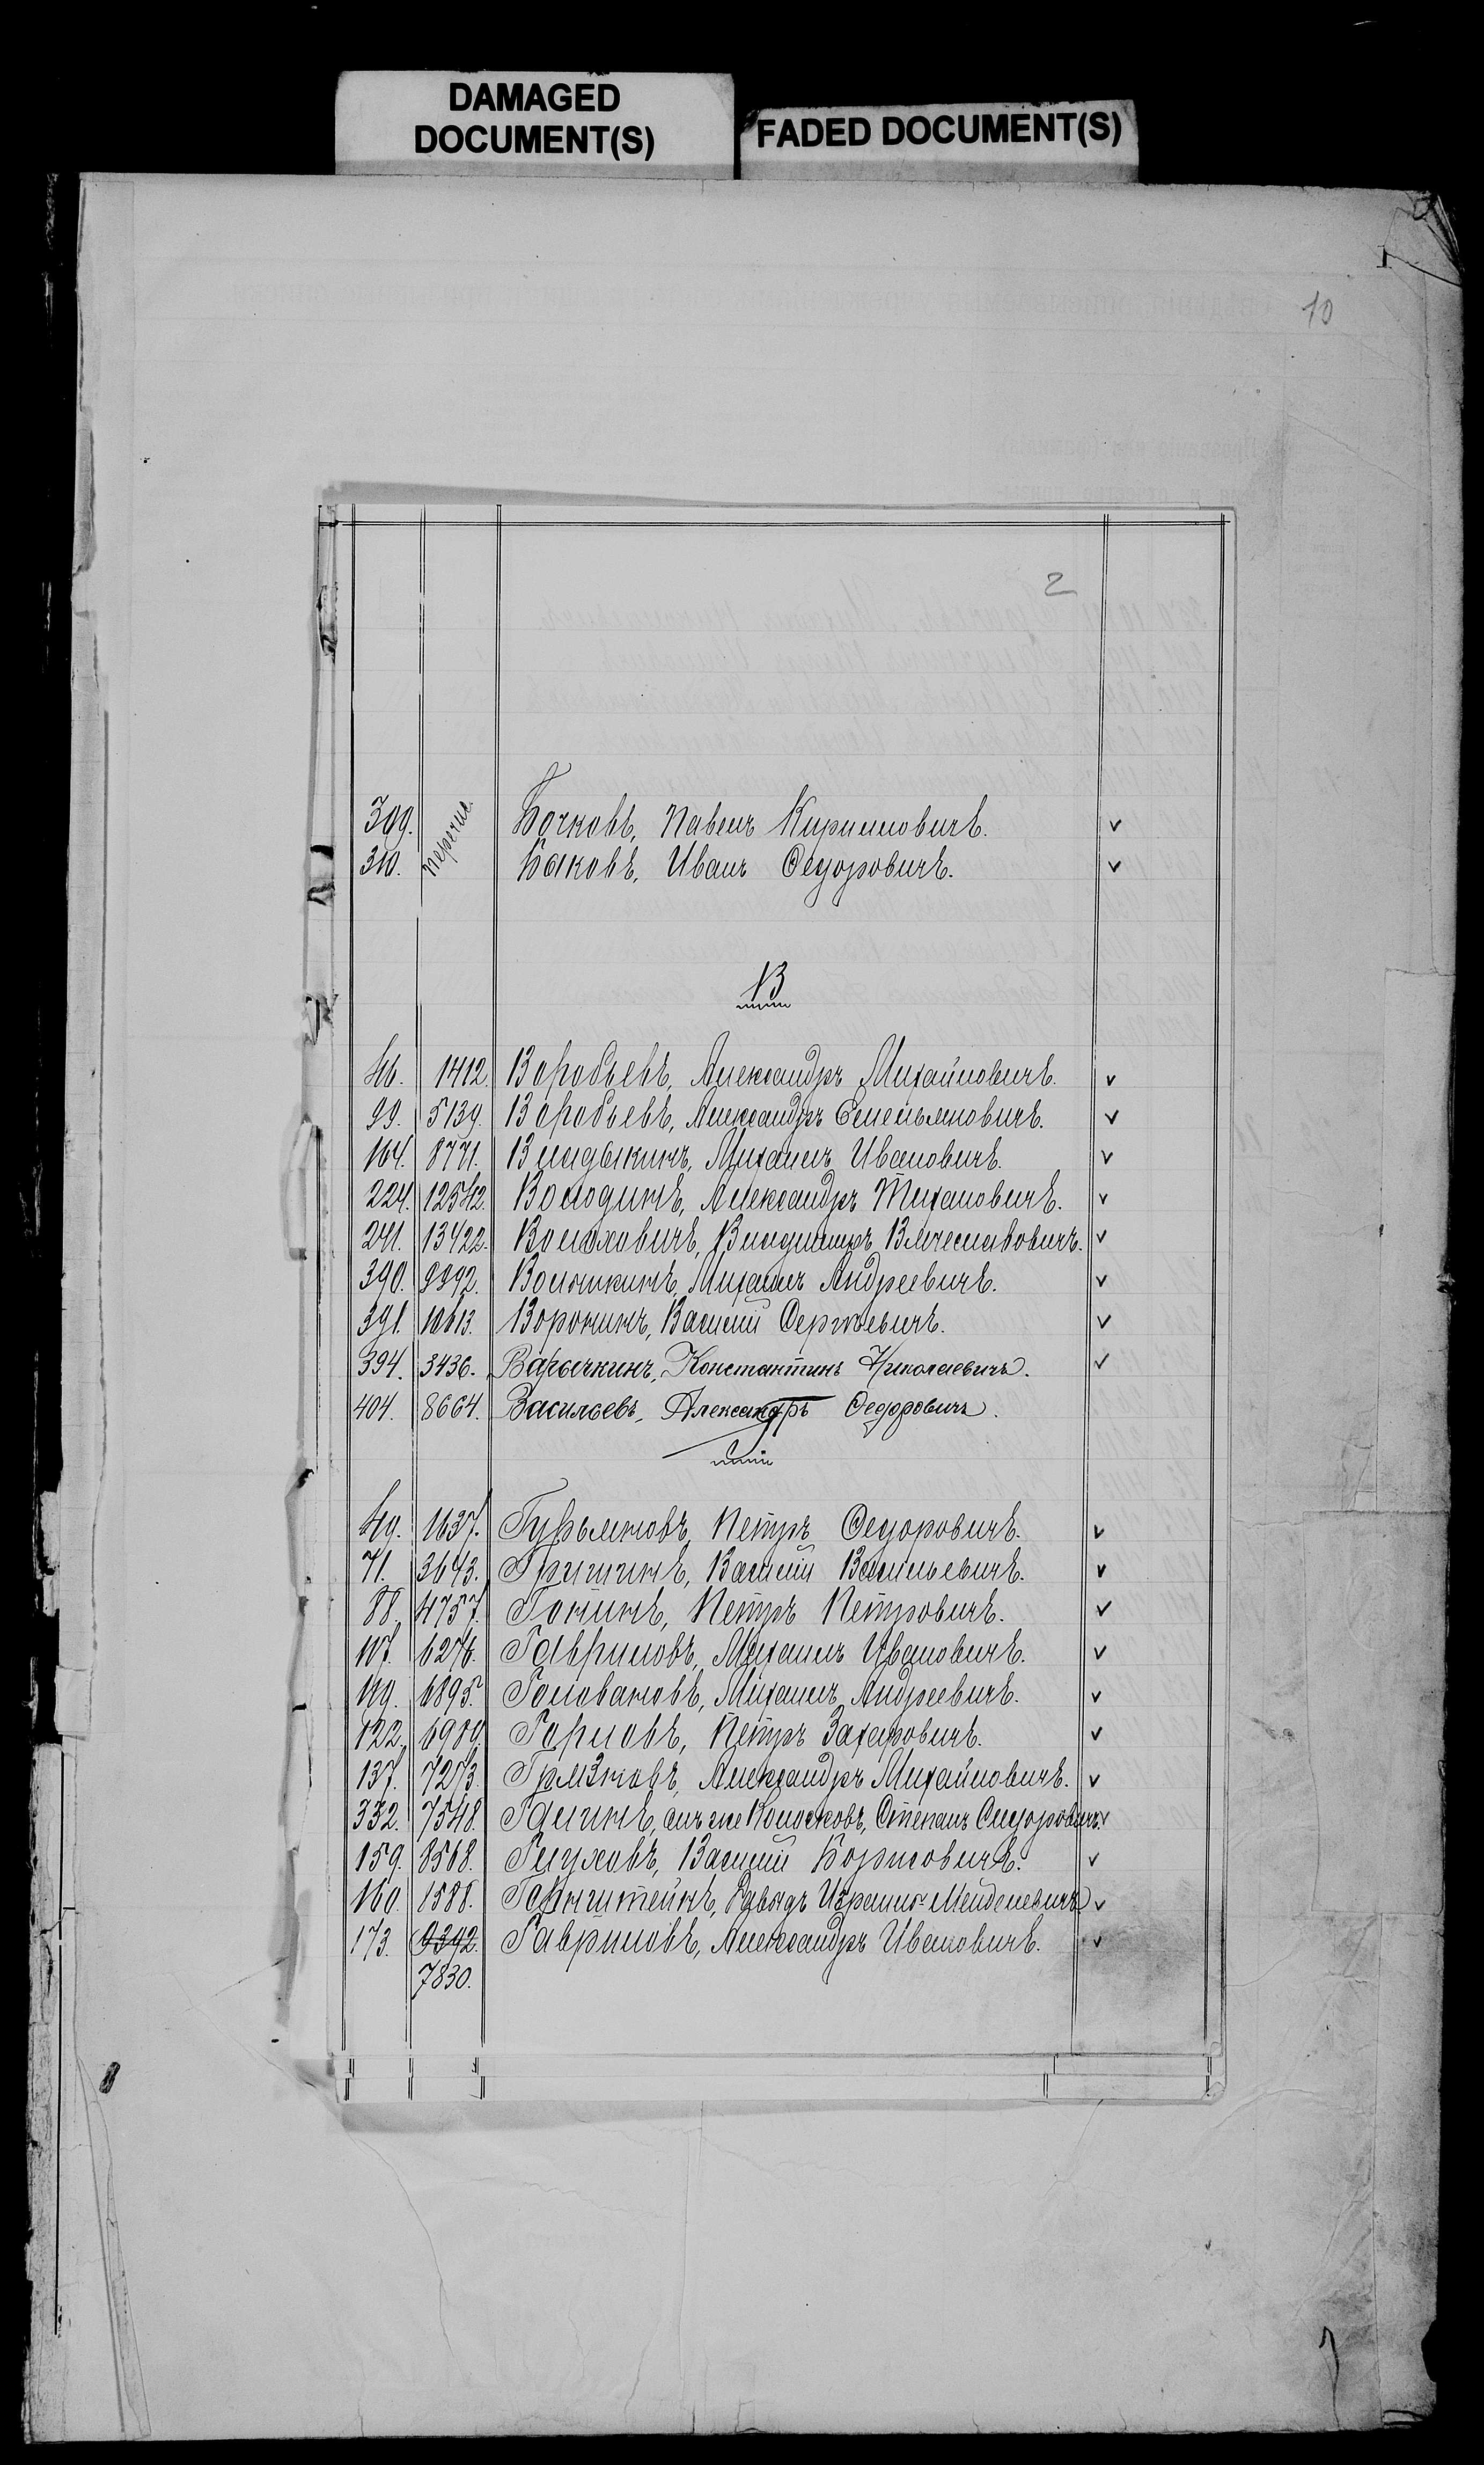 DAMAGED
DOCUMENT(S)
FADED DOCUMENT(S)
1
10
2
309. Бочковъ, Павелъ Кирилловичъ. v
310. Быковъ, Иванъ Федоровичъ. v
В
46. 1412. Воробьевъ, Александръ Михайловичъ. v
99. 5139. Воробьевъ, Александръ Емельяновичъ. v
164. 8771. Владыкинъ, Михаилъ Ивановичъ. v
224. 12542. Володинъ, Александръ Тихановичъ. v
241. 13422. Волоховичъ, Владимиръ Вячеславовичъ. v
390. 9992. Волошкинъ, Михаилъ Андреевичъ. v
391. 10613. Воронинъ, Василій Сергѣевичъ. v
394. 3436. Варычкинъ, Константинъ Николаевичъ. v
404. 8664. Васильевъ, Александръ Федоровичъ.
Г
49. 1637. Гурьяновъ, Петръ Федоровичъ. v
71. 3643. Гришинъ, Василій Васильевичъ. v
88. 4757. Гонинъ, Петръ Петровичъ. v
107. 6276. Гавриловъ, Михаилъ Ивановичъ. v
119. 6895. Головановъ, Михаилъ Андреевичъ. v
122. 6989. Горловъ, Петръ Захаровичъ. v
137. 7273. Грязновъ, Александръ Михайловичъ. v
332. 7548. Галинъ, онъ же Колосковъ, Степанъ Сидоровичъ. v
159. 8568. Глуховъ, Василій Борисовичъ. v
160. 1588. Горнштейнъ, Давыдъ Израиль-Менделевичъ v
173. 9392. Гавриловъ, Александръ Ивановичъ. v
7830.